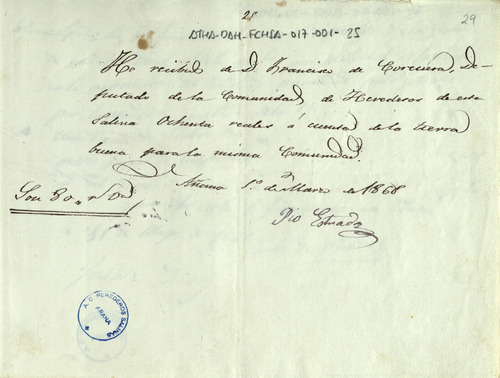 25
29
ATHA-DAH-FCHSA-017-001-25
He recibido de D. Francisco de Corcuera, De-
putado de la Comunidad de Herederos de esta
Salina Ochenta reales á cuenta de la tierra
buena para la misma Comunidad.
Añana 1º de Marzo de 1868
Son 80 „ r.s
Pio Estrada
A. C. HEREDEROS SALINAS
AÑANA